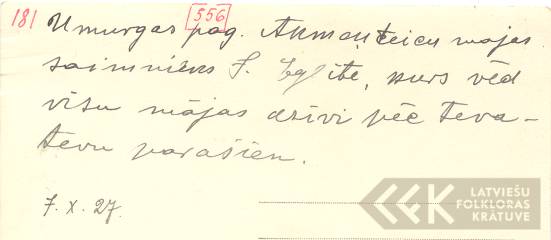 181 556
Umurgas pag. Akmenteicu mājas
saimnieks J. Eglīte, kurs ved
visu mājas dzīvi pēc teva-
tevu parašien.
7. X. 27.
LATVIEŠU
FOLKLORAS
KRĀTUVE